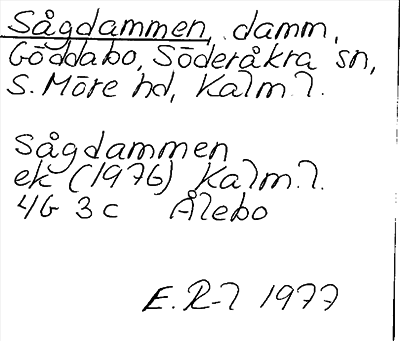 Sågdammen, damm,
Göddabo, Söderåkra sn,
S. Möre hd, Kalm. l.
Sågdammen
ek (1976) Kalm. l.
4G 3c Ålebo
E. R-l 1977